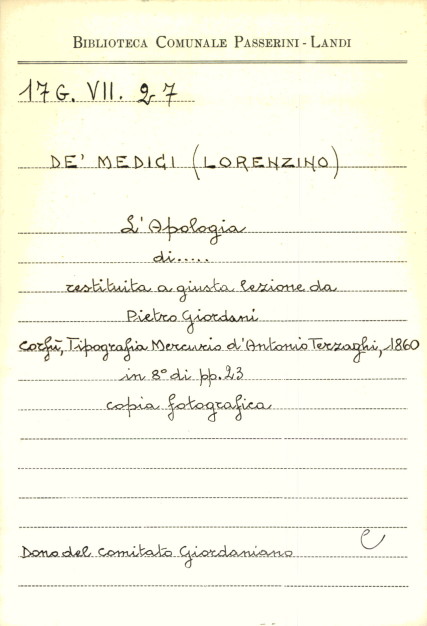 BIBLIOTECA COMUNALE PASSERINI - LANDI
17 G. VII. 27
DE' MEDICI (LORENZINO)
L'Apologia
di.....
restituita a giusta lezione da
Pietro Giordani
Corfù, Tipografia Mercurio d'Antonio Terzaghi, 1860
in 8° di pp. 23
copia fotografica
Dono del Comitato Giordaniano